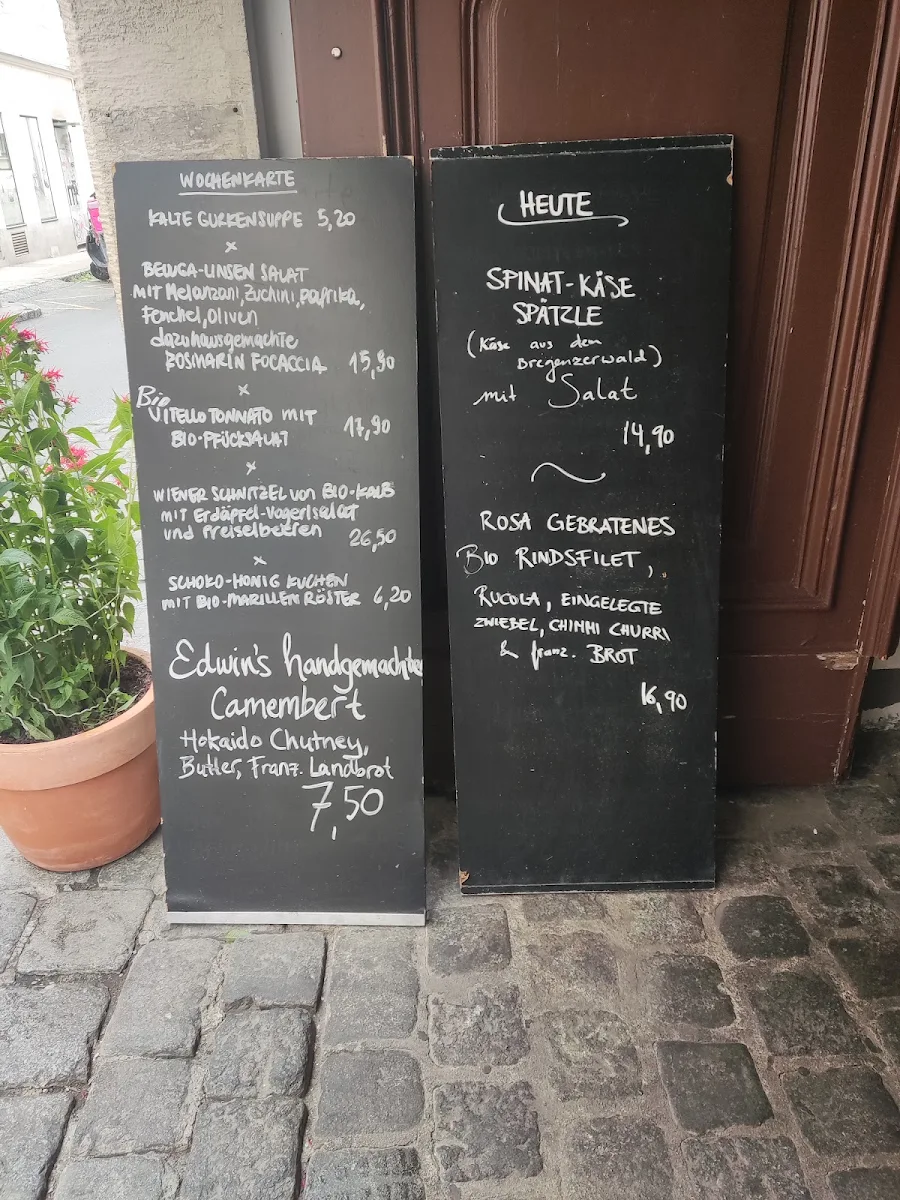 WOCHENKARTE
KALTE GURKENSUPPE 5,20
x
BELUGA-LINSEN SALAT
MIT Melanzani, Zuchini, paprika,
Fenchel, Oliven
dazu hausgemachte
ROSMARIN FOCACCIA 15,90
x
Bio
VITELLO TONNATO MIT
BIO-PFÜCKSALAT 17,90
x
WIENER SCHNITZEL von BIO-KALB
MIT Erdäpfel-Vogerlsalat
und Preiselbeeren 26,50
x
SCHOKO-HONIG KUCHEN
MIT BIO-MARILLEN RÖSTER 6,20
Edwin's handgemachter
Camembert
Hokaido Chutney,
Butter, Franz. Landbrot
7,50
HEUTE
SPINAT-KÄSE
SPÄTZLE
(Käse aus dem
Bregenzerwald)
mit Salat
14,90
~
ROSA GEBRATENES
BIO RINDSFILET,
RUCOLA, EINGELEGTE
ZWIEBEL, CHIMMI CHURRI
& franz. BROT
16,90